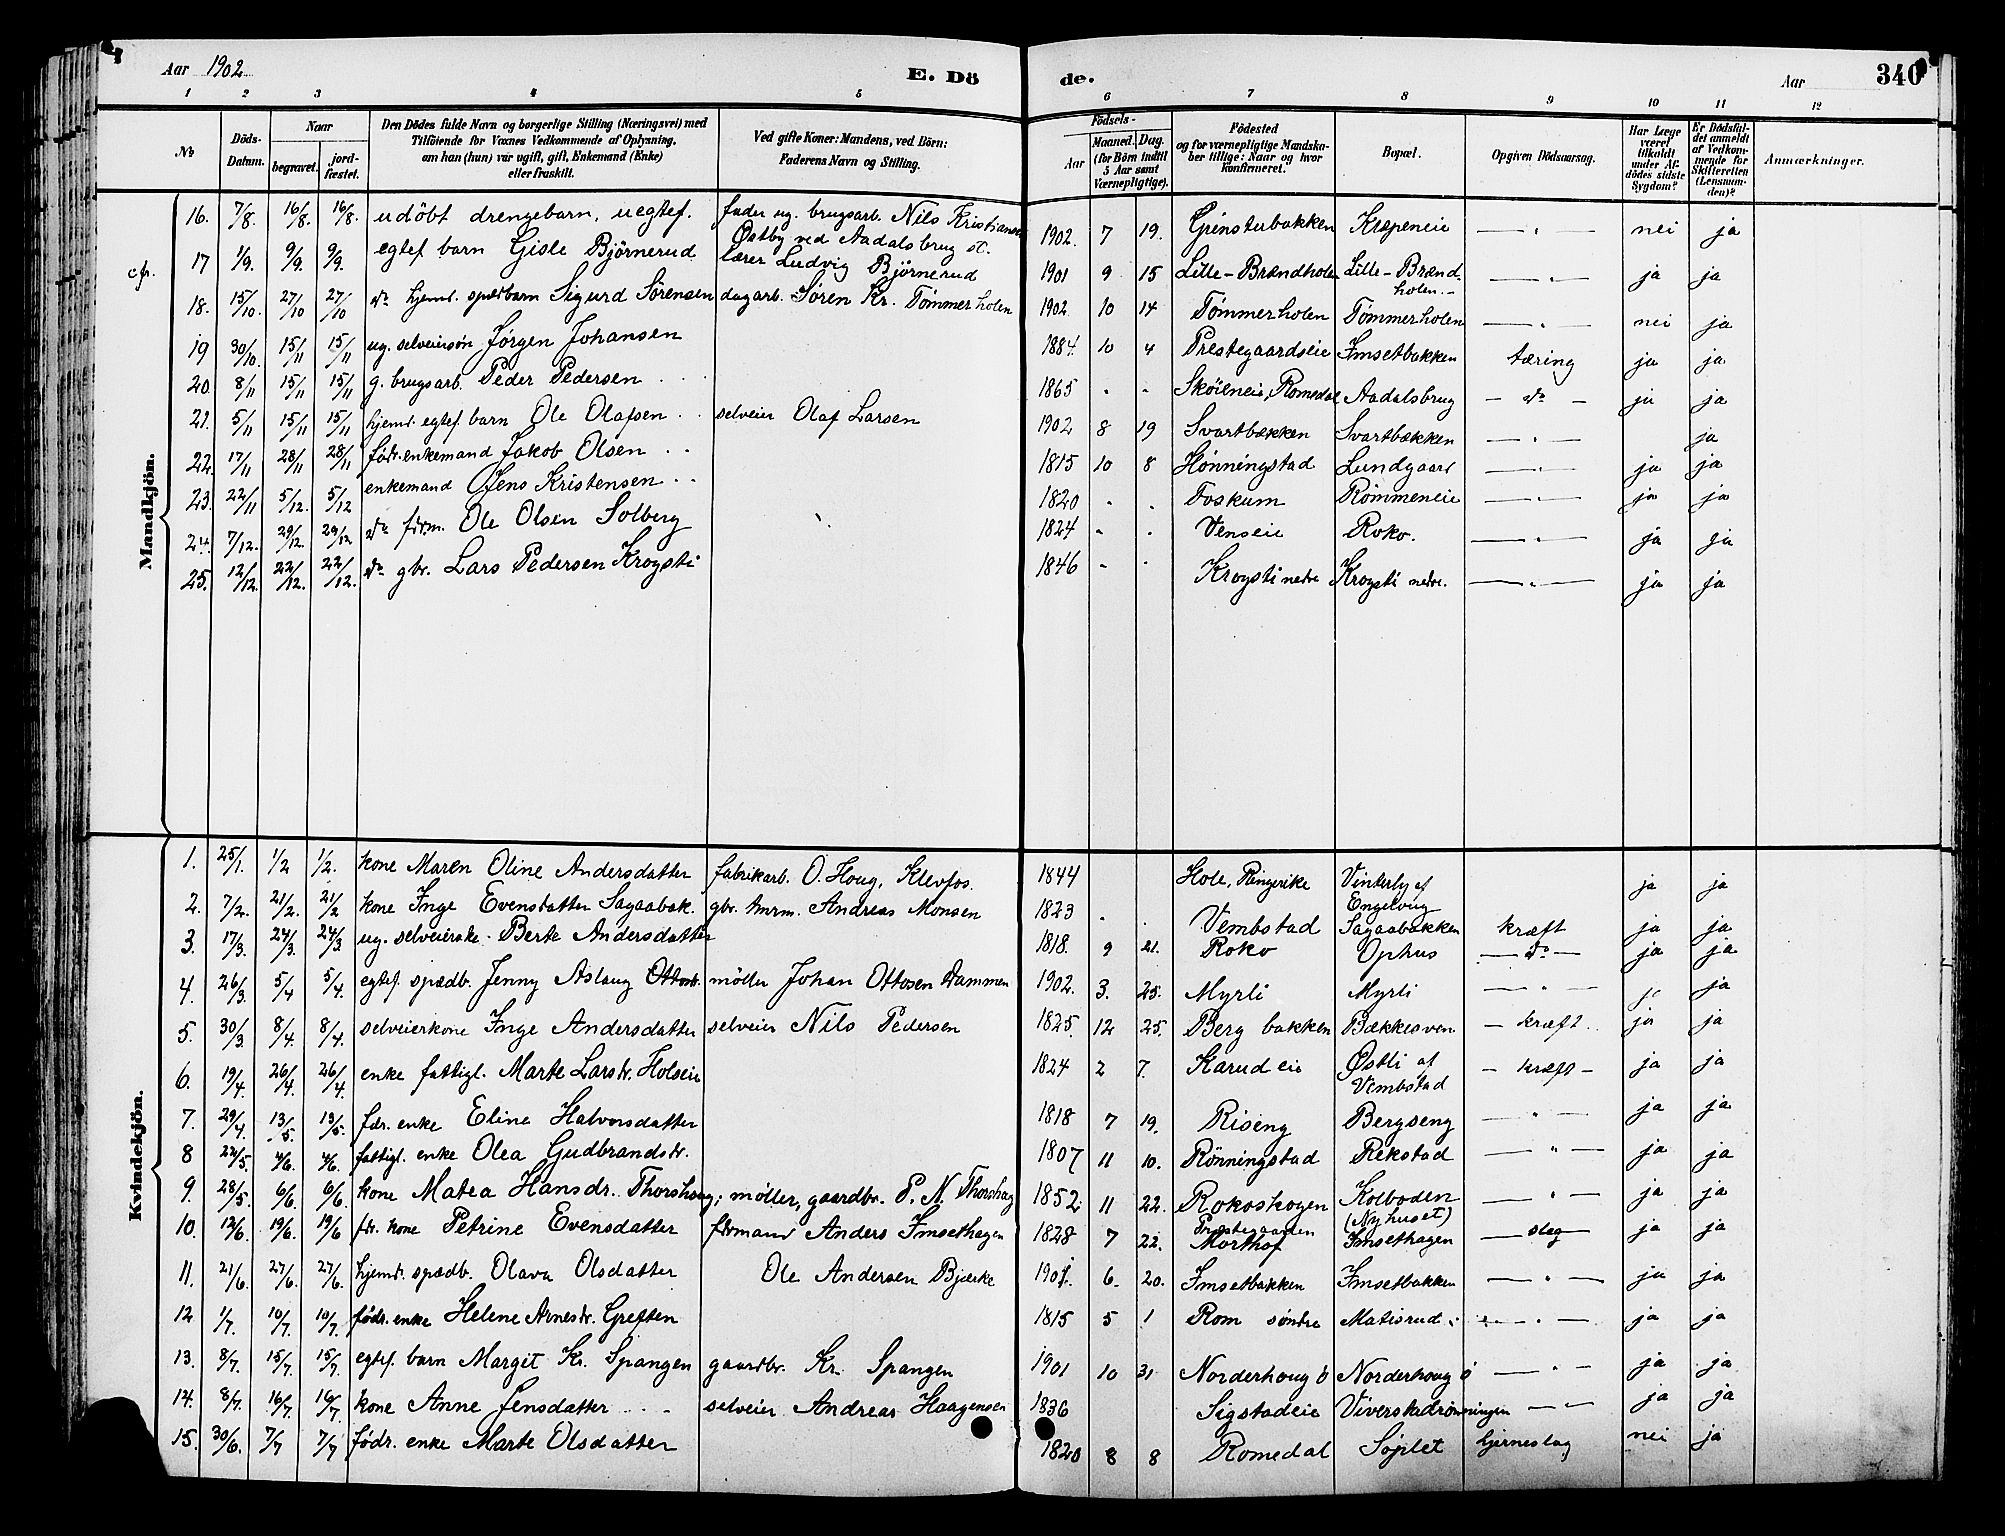 Aar 1902
E. Dö de.
Aar
340
1 2 3 4 5 6 7 8 9 10 11 12
No
Döds-Datum.
Naar
begravet.
jord-fæstet.
Den Dödes fulde Navn og borgerlige Stilling (Næringsvei) med
Tilföiende for Voxnes Vedkommende af Oplysning,
om han (hun) var ugift, gift, Enkemand (Enke)
eller fraskilt.
Ved gifte Koner: Mandens, ved Börn:
Faderens Navn og Stilling.
Födsels-
Aar
Maaned. Dag.
(for Börn indtil
5 Aar samt
Værnepligtige).
Födested
og for værnepligtige Mandska-
ber tillige: Naar og hvor
konfirmeret.
Bopæl.
Opgiven Dödsaarsag.
Har Læge
været
tilkaldt
under Af-
dödes sidste
Sygdom?
Er Dödsfal-
det anmeldt
af Vedkom-
mende for
Skifteretten
(Lensman-
den)?
Anmærkninger.
Mandkjön.
16. 7/8. 16/8. 16/8. udöbt drengebarn, uegtef. fader ug. brugsarb. Nils Kristiansen 1902. 7 19. Grinsterbakken Kræpeneie — " — nei ja
Østby ved Aadalsbrug st.
cfr. 17 1/9. 9/9. 9/9. egtef barn Gisle Björnerud lærer Ludvig Björnerud 1901 9 15 Lille-Brændholen Lille-Brænd- — " — ja ja
holen.-
18. 15/10. 27/10 27/10 do hjemd. spædbarn Sigurd Sörensen dagarb. Sören Kr. Tömmerholen 1902 10 14 Tömmerholen Tömmerholen — " — nei ja
19 30/10. 15/11 15/11 ug. selveiersön Jørgen Johansen 1884. 10 4 Prestegaardseie Imsetbakken tæring ja ja
20. 8/11 15/11 15/11 g. brugsarb. Peder Pedersen . . . 1865 - - Skøieneie, Romedal Aadalsbrug — do — ja ja
21. 5/11 15/11 15/11 hjemd. egtef. barn Ole Olafsen . . selveier Olaf Larsen 1902 8 19 Svartbækken Svartbækken — " — ja
22. 17/11 28/11 28/11 födr. enkemand Jakob Olsen . . 1815 10 8 Hönningstad Lundgaard — " — ja ja
23. 22/11 5/12. 5/12 enkemand Jens Kristensen . . 1820 . . Foskum Rømmeneie — " — ja ja
24. 7/12. 29/12. 29/12 do Ole Olsen Solberg 1824 - . Venseie Roko. — " — ja ja
25. 12/12. 22/12. 22/12. do gbr. Lars Pedersen Krogsti 1846 - . Krogsti nedre Krogsti nedre. — " — ja ja
Kvindekjön.
1. 25/1. 1/2 1/2. kone Maren Oline Andersdatter fabrikarb. O. Houg, Klevfos. 1844 Hole, Ringerike Vinterby af ja ja
Engelvig
2. 7/2. 21/2. 21/2 kone Inge Evensdatter Sagaabak. gbr. tmrm. Andreas Monsen 1823 . . Vembstad Sagaabakken kræft ja ja
3. 17/3. 24/3 24/3 ug. selveierske. Berte Andersdatter 1818. 9 21. Roko Ophus — do — ja ja
4. 26/3. 5/4 5/4. egtef. spædb. Jenny Aslaug Ottosdr. möller Johan Ottosen Dammen 1902. 3. 25. Myrli Myrli — " — ja
5. 30/3 8/4 8/4. selveierkone Inge Andersdatter selveier Nils Pedersen 1825. 12 25. Berg bakken Bækkesven — kræft. ja ja
6. 19/4. 26/4 26/4. enke fattigl. Marte Larsdr. Holseie 1824 2 7. Karud eie Østli af — kræft — ja ja
Vembstad
7. 29/4. 13/5. 13/5. fdr. enke Eline Halvorsdatter 1818 7 19. Riseng Bergseng — " — ja ja
8 22/5. 4/6. 4/6. fattigl. enke Olea Gudbrandsdr. 1807 11 10. Rönningstad Rekstad — " — ja ja
9. 28/5. 6/6. 6/6. kone Matea Hansdr. Thorshaug; möller, gaardbr. P. N. Thorshaug 1852 11 22. Rokoskogen Kolboden — " — ja ja
(Nyhuset)
10. 12/6. 19/6. 19/6 fdr. kone Petrine Evensdatter fdrmand Anders Imsethagen 1828 7 22. Prestegaarden Imsethagen — slag — ja ja
Morthof
11. 21/6. 27/6. 27/6. hjemd. spædb. Olava Olsdatter Ole Andersen Bjærke 6. 20. Imsetbakken Imsetbakken — " — ja ja
12 1/7. 10/7. 10/7. födr. enke Helene Arnesdr. Greften 1815 5 1 Rom söndre Matisrud — " — ja ja
13. 8/7. 15/7. 15/7. egtef. barn Margit Kr. Spangen gaardbr. Kr. Spangen 1901 10 31 Norderhoug ö Norderhoug ö — " — ja ja
14. 8/7. 16/7. 16/7. kone Anne Jensdatter . . . selveier Andreas Haagensen 1836 Sigstadeie Viverstadrönningen — " — ja ja
15. 30/6. 7/7 7/7 födr. enke Marte Olsdatter 1820 8 8 Romedal Søplet hjerneslag nei ja